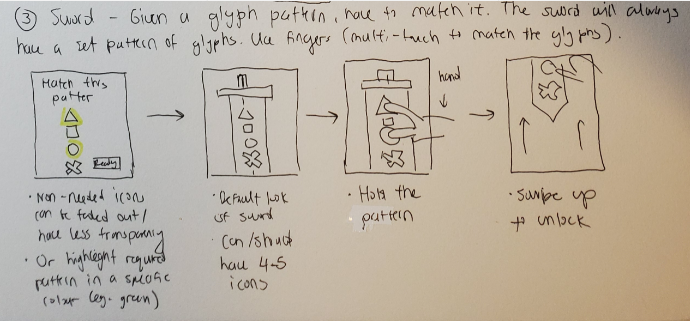 ③ Sword - Given a glyph pattern, have to match it. The sword will always
have a set pattern of glyphs. Use fingers (multi-touch to match the glyphs).
Match this
patter
Ready
hand
· Non-needed icons
can be faded out /
have less transparency
· Or highlight required
pattern in a specific
colour (eg. green)
· Default look
of sword
· Can/should
have 4-5
icons
· Hold the
pattern
· Swipe up
to unlock